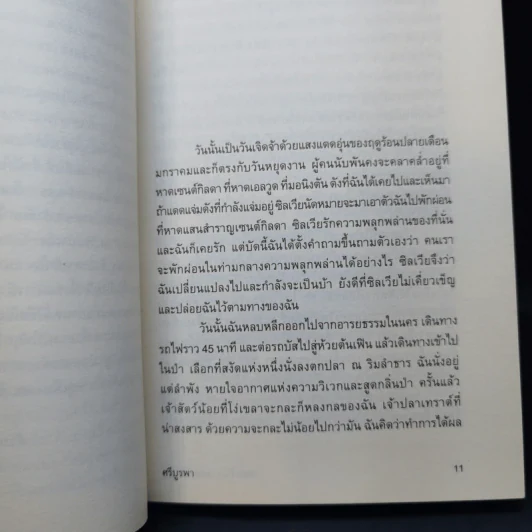 วันนั้นเป็นวันเจิดจ้าด้วยแสงแดดอุ่นของฤดูร้อนปลายเดือน
มกราคมและก็ตรงกับวันหยุดงาน ผู้คนนับพันคงจะคลาคล่ำอยู่ที่
หาดเซนต์กิลดา ที่หาดเอลวูด ที่มอนิงตัน ดังที่ฉันได้เคยไปและเห็นมา
ถ้าแดดแจ่มดังที่กำลังแจ่มอยู่ ซิลเวียนัดหมายจะมาเอาตัวฉันไปพักผ่อน
ที่หาดแสนสำราญเซนต์กิลดา ซิลเวียรักความพลุกพล่านของที่นั่น
และฉันก็เคยรัก แต่บัดนี้ฉันได้ตั้งคำถามขึ้นถามตัวเองว่า คนเรา
จะพักผ่อนในท่ามกลางความพลุกพล่านได้อย่างไร ซิลเวียจึงว่า
ฉันเปลี่ยนแปลงไปและกำลังจะเป็นบ้า ยังดีที่ซิลเวียไม่เคี่ยวเข็ญ
และปล่อยฉันไว้ตามทางของฉัน
วันนั้นฉันหลบหลีกออกไปจากอารยธรรมในนคร เดินทาง
รถไฟราว 45 นาที และต่อรถบัสไปสู่ห้วยตันเฟิน แล้วเดินทางเข้าไป
ในป่า เลือกที่สงัดแห่งหนึ่งนั่งลงตกปลา ณ ริมลำธาร ฉันนั่งอยู่
แต่ลำพัง หายใจอากาศแห่งความวิเวกและสูดกลิ่นป่า ครั้นแล้ว
เจ้าสัตว์น้อยที่โง่เขลาจะกละก็หลงกลของฉัน เจ้าปลาเทราต์ที่
น่าสงสาร ด้วยความจะกละไม่น้อยไปกว่ามัน ฉันคิดว่าทำการได้ผล
ศรีบูรพา
11